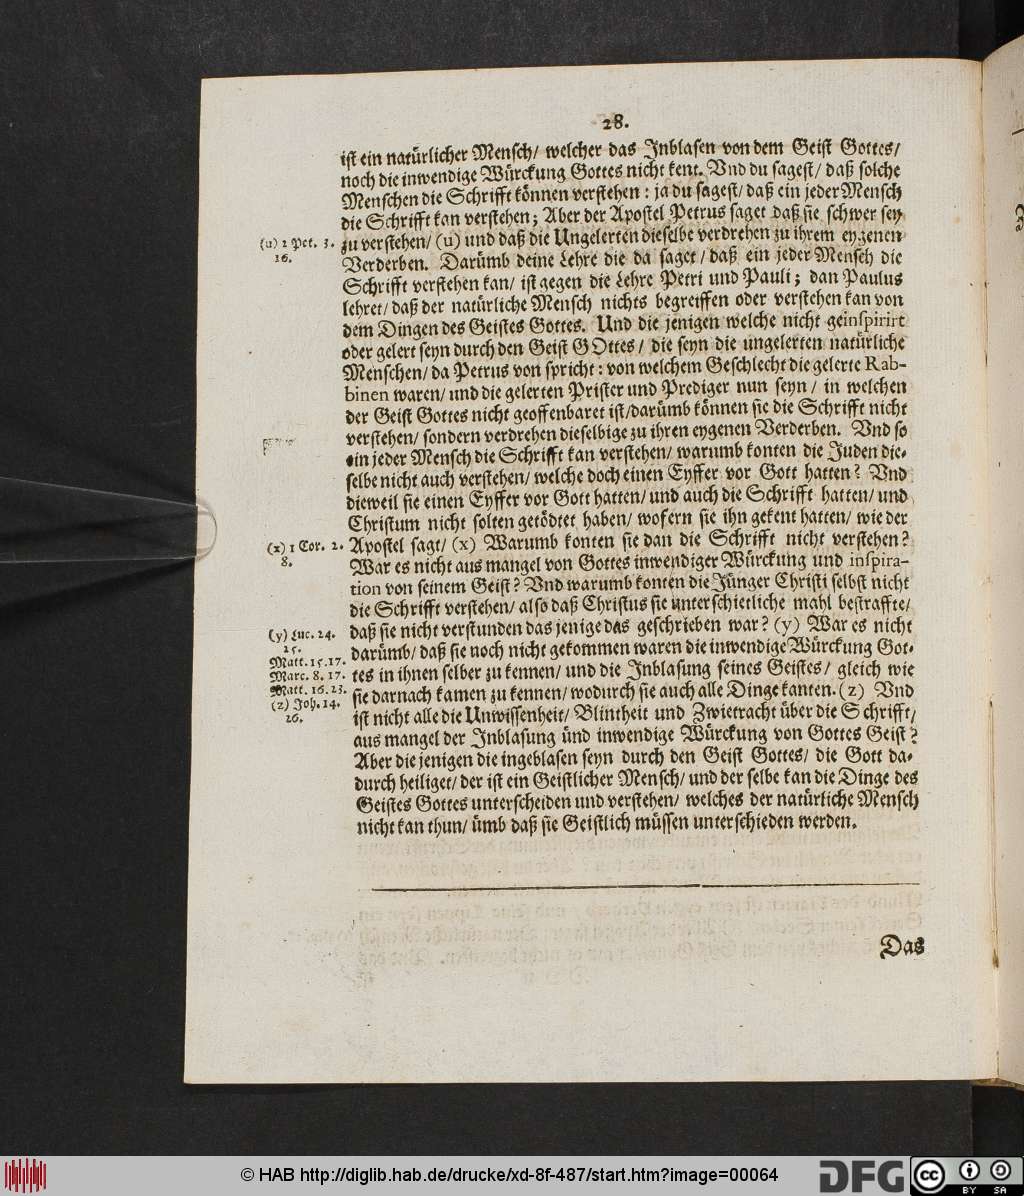 28.
ist ein natürlicher Mensch/ welcher das Inblasen von dem Geist Gottes/
noch die inwendige Würckung Gottes nicht kent. Vnd du sagest/ daß solche
Menschen die Schrifft können verstehen: ja du sagest/ daß ein jeder Mensch
die Schrifft kan verstehen; Aber der Apostel Petrus saget daß sie schwer sey
(u) 2 Pet. 3.
16.
zu verstehen/ (u) und daß die Ungelerten dieselbe verdrehen zu ihrem eygenen
Verderben. Darümb deine Lehre die da saget/ daß ein jeder Mensch die
Schrifft verstehen kan/ ist gegen die Lehre Petri und Pauli; dan Paulus
lehret/ daß der natürliche Mensch nichts begreiffen oder verstehen kan von
dem Dingen des Geistes Gottes. Und die jenigen welche nicht geinspirirt
oder gelert seyn durch den Geist GOttes/ die seyn die ungelerten natürliche
Menschen/ da Petrus von spricht: von welchem Geschlecht die gelerte Rab-
binen waren/ und die gelerten Prister und Prediger nun seyn/ in welchen
der Geist Gottes nicht geoffenbaret ist/ darümb können sie die Schrifft nicht
verstehen/ sondern verdrehen dieselbige zu ihren eygenen Verderben. Vnd so
ein jeder Mensch die Schrifft kan verstehen/ warumb konten die Juden die-
selbe nicht auch verstehen/ welche doch einen Eyffer vor Gott hatten? Vnd
dieweil sie einen Eyffer vor Gott hatten/ und auch die Schrifft hatten/ und
Christum nicht solten getödtet haben/ wofern sie ihn gekent hatten/ wie der
(x) 1 Cor. 2.
8.
Apostel sagt/ (x) Warumb konten sie dan die Schrifft nicht verstehen?
War es nicht aus mangel von Gottes inwendiger Würckung und inspira-
tion von seinem Geist? Vnd warumb konten die Jünger Christi selbst nicht
die Schrifft verstehen/ also daß Christus sie unterschietliche mahl bestraffte/
(y) Luc. 24.
25.
Matt. 15.17.
Marc. 8. 17.
Matt. 16. 23.
(z) Joh. 14.
26.
daß sie nicht verstunden das jenige das geschrieben war? (y) War es nicht
darümb/ daß sie noch nicht gekommen waren die inwendige Würckung Got-
tes in ihnen selber zu kennen/ und die Inblasung seines Geistes/ gleich wie
sie darnach kamen zu kennen/ wodurch sie auch alle Dinge kanten. (z) Vnd
ist nicht alle die Unwissenheit/ Blintheit und Zwietracht über die Schrifft/
aus mangel der Inblasung ünd inwendige Würckung von Gottes Geist?
Aber die jenigen die ingeblasen seyn durch den Geist Gottes/ die Gott da-
durch heiliget/ der ist ein Geistlicher Mensch/ und der selbe kan die Dinge des
Geistes Gottes unterscheiden und verstehen/ welches der natürliche Mensch
nicht kan thun/ ümb daß sie Geistlich müssen unterschieden werden.
Das
© HAB http://diglib.hab.de/drucke/xd-8f-487/start.htm?image=00064
DFG
cc BY SA